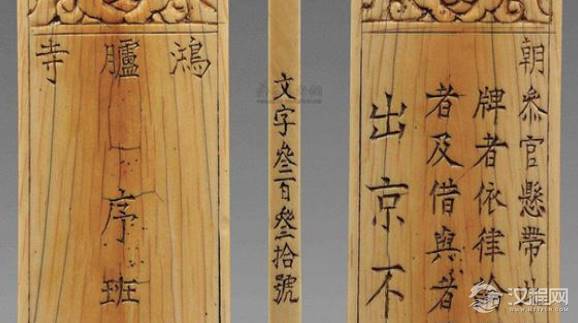 鴻臚寺
序班
文字叅百叅拾號
朝叅官懸帶
牌者依律
者及借與者
出京不
汉程网